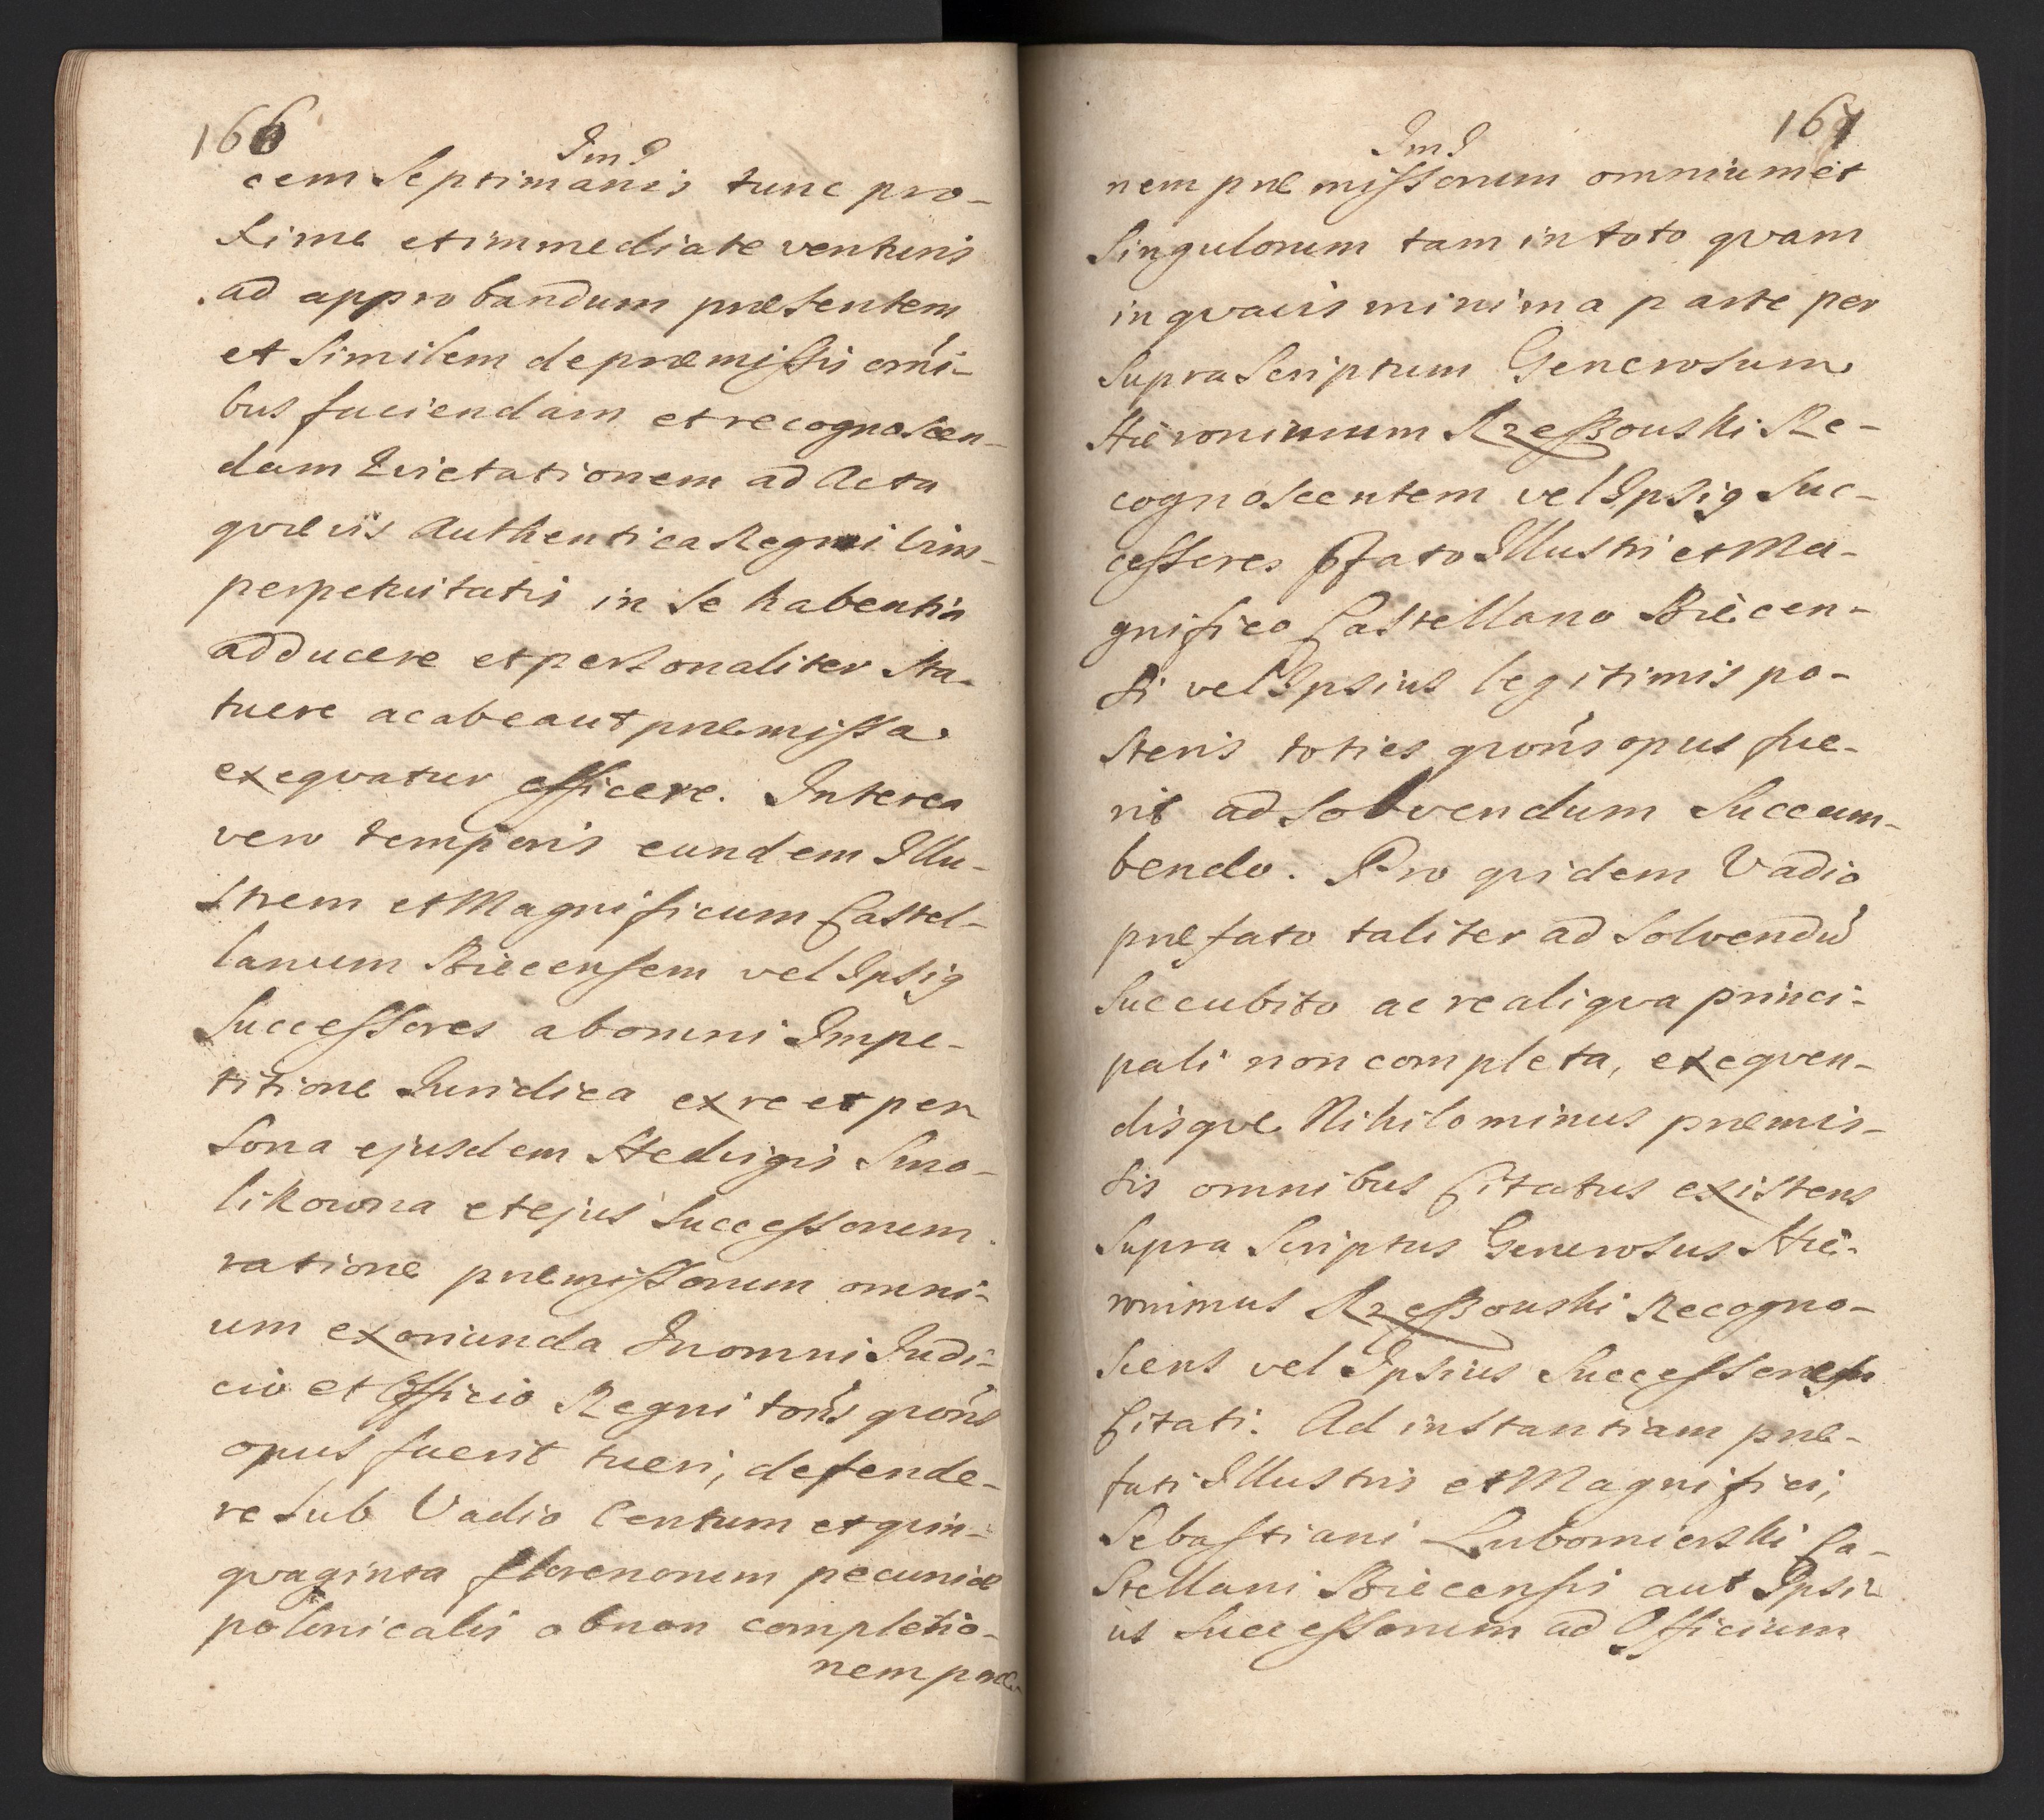 166
JmJ
cem Septimanis tunc pro-
xime et immediate venturis
ad approbandum præsentem
et Similem de præmissis om̃i-
bus faciendam et recognoscen-
dam Quietationem ad Acta
quævis Authentica Regni Vim
perpetuitatis in Se habentia
adducere et personaliter Sta-
tuere ac ab ea ut præmissa
exequatur efficere. Interea
vero temporis eundem Illu-
strem et Magnificum Castel-
lanum Biecensem vel Ipsig
Successores ab omni Impe-
titione Juridica ex re et per
Sona ejusdem Hedvigis Smo-
likowna et ejus Successorum
ratione præmissorum omni-
um exoriunda In omni Judi-
cio et Officio Regni toñs quoñs
opus fuerit tueri, defende-
re Sub Vadio Centum et quin-
quaginta florenorum pecuniæ
polonicalis ob non completio-
nem præ
167
JmJ
nem præmissorum omnium et
Singulorum tam in toto quam
in quavis minima parte per
Supra Scriptum Generosum
Hieronimum Rzeszowski Re-
cognoscentem vel Ipsig Suc-
cessores Pfato Illustri et Ma-
gnifico Castellano Biecen-
si vel Ipsius legitimis po-
steris toties quoñs opus fue-
rit ad Solvendum Succum-
bendo. Pro quidem Vadio
præfato taliter ad Solvendũ
Succubito ac re aliqva princi-
pali non completa, exequen-
disque Nihilominus præmis-
sis omnibus Citatus existens
Supra Scriptus Generosus Hie-
ronimus Rzeszowski Recogno-
scens vel Ipsius Successores
Citati. Ad instantiam præ-
fati Illustris et Magnifici,
Sebastiani Lubomierski Ca-
stellani Biecensis aut Ipsi-
us Successorum ad Officium